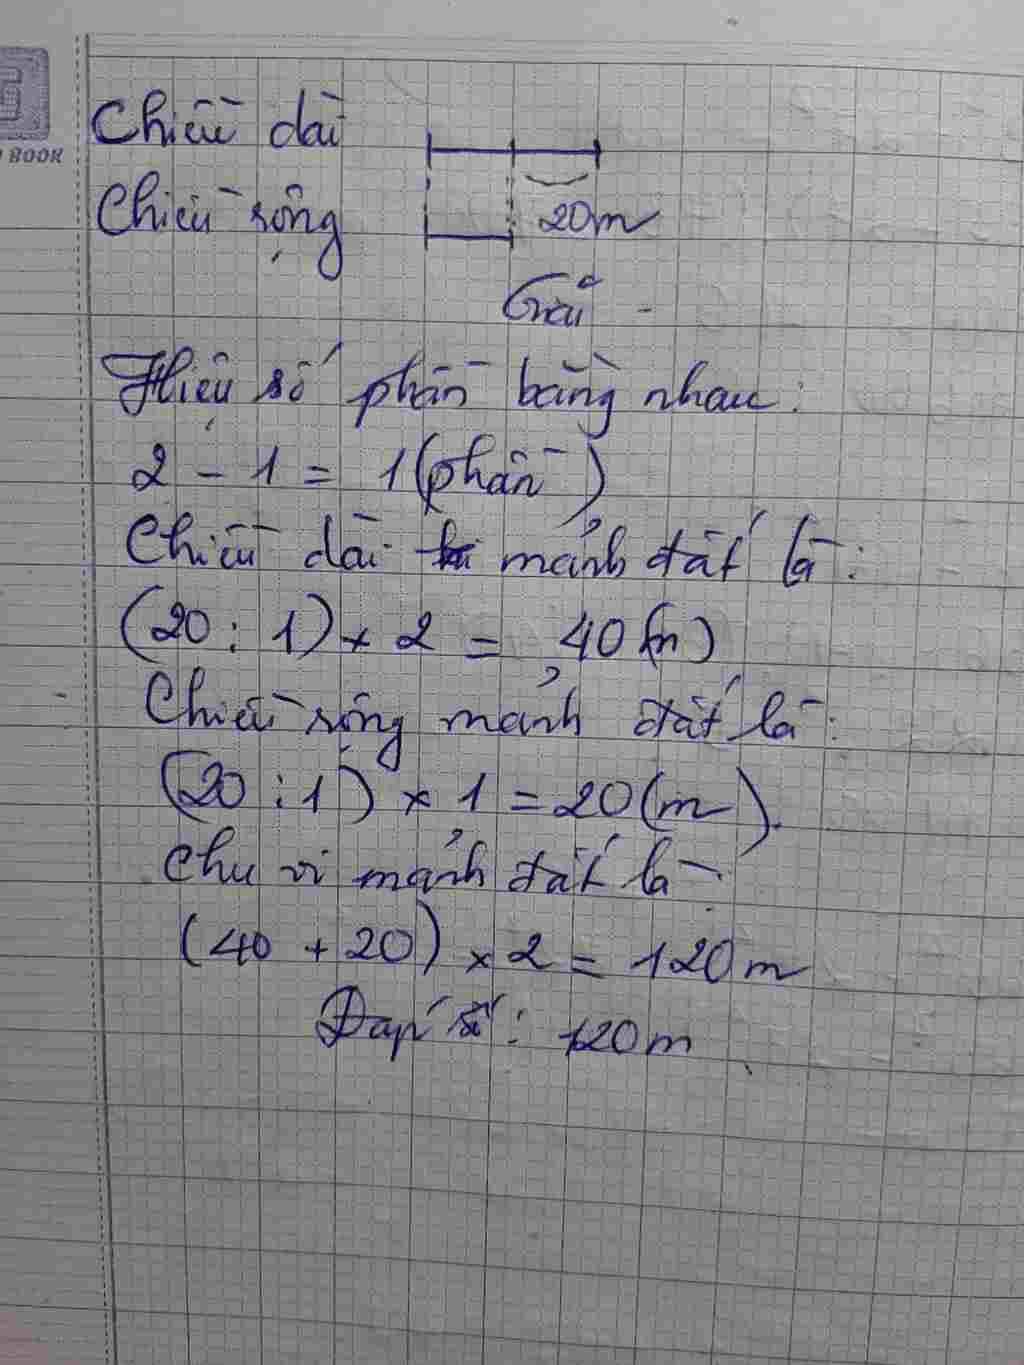 BOOK
Chiều dài
Chiều rộng 20m
Giải
Hiệu số phần bằng nhau:
2 - 1 = 1 (phần)
Chiều dài mảnh đất là:
(20 : 1) x 2 = 40 (m)
Chiều rộng mảnh đất là:
(20 : 1) x 1 = 20 (m).
Chu vi mảnh đất là:
(40 + 20) x 2 = 120m
Đáp số: 120m